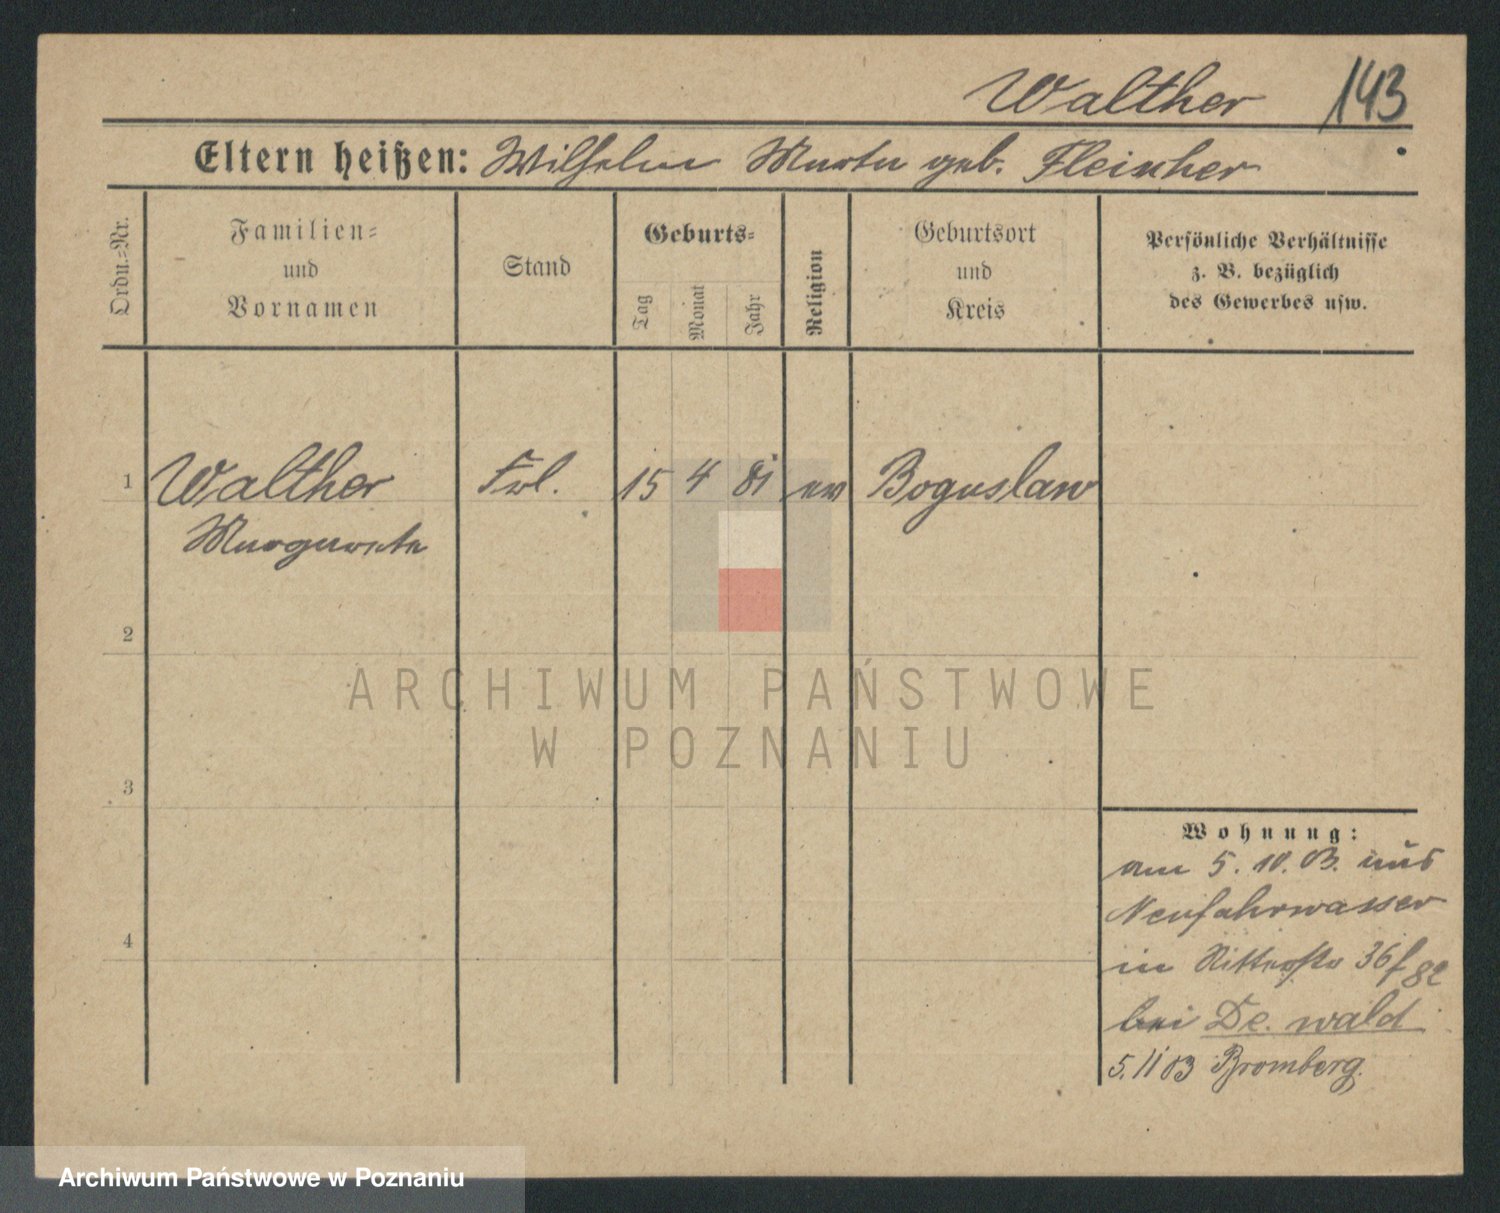 Walther 143
Eltern heißen: Wilhelm Marta geb. Fleischer
Ordn.-Nr.
Familien-
und
Vornamen
Stand
Geburts-
Tag
Monat
Jahr
Religion
Geburtsort
und
Kreis
Persönliche Verhältnisse
z. B. bezüglich
des Gewerbes usw.
1 Walther Frl. 15 4 81 ev Boguslaw
Margarete
2
3
4
ARCHIWUM PAŃSTWOWE
W POZNANIU
Wohnung:
am 5. 10. 03. aus
Neufahrwasser
in Ritterstr 36
bei wald
5. 11 03 Bromberg.
Archiwum Państwowe w Poznaniu